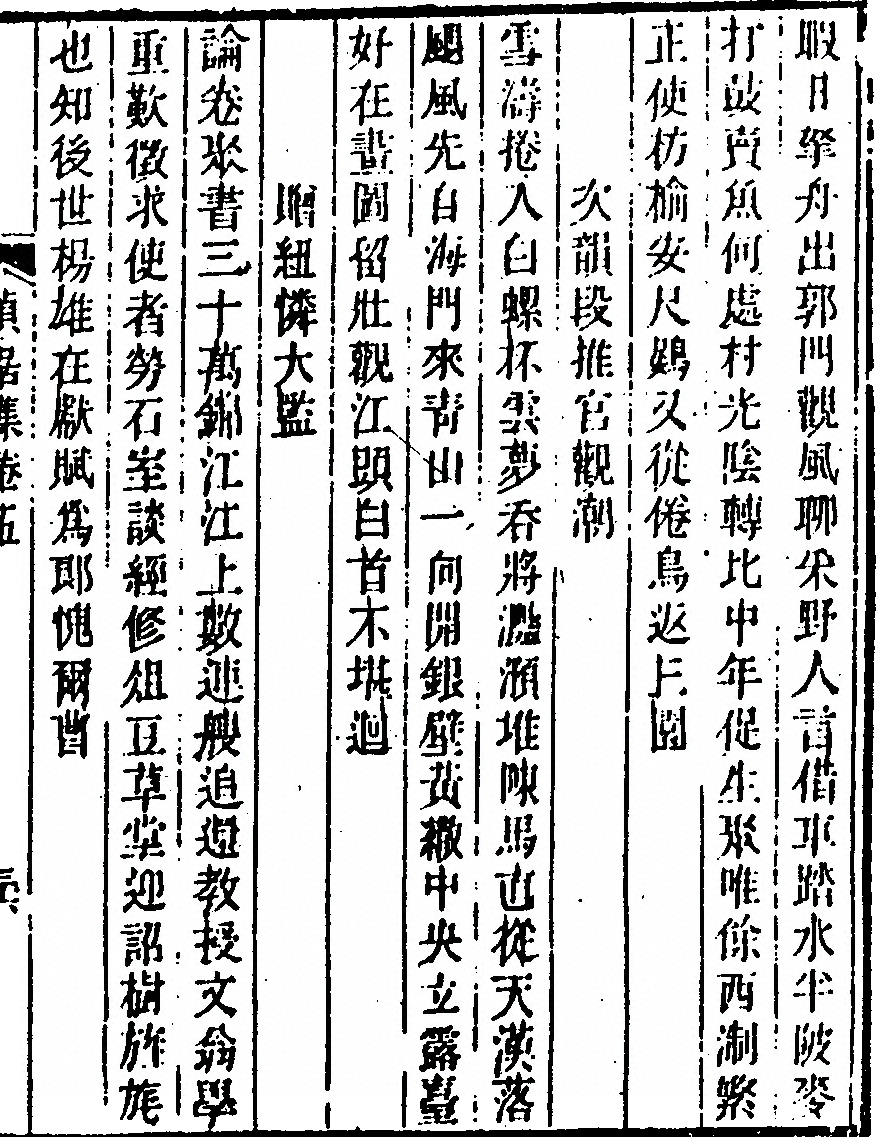 暇日拏舟出郭門觀風聊采野人言借車踏水半陂麥
打鼓賣魚何處村光陰轉比中年促生聚唯餘西淛繁
正使枋榆安尺鷃又從倦鳥返丘園
次韻段推官觀潮
雪濤捲入白螺杯雲夢吞將灩澦堆陣馬直從天漢落
颶風先自海門來青山一向開銀壁黃繖中央立露臺
好在畫圖留壯觀江頭白首不堪迴
贈紐憐大監
論卷聚書三十萬錦江江上數連艘追還教授文翁學
重歎徵求使者勞石室談經修俎豆草堂迎詔樹旌旄
也知後世楊雄在獻賦爲郎愧爾曹
貞居集卷五